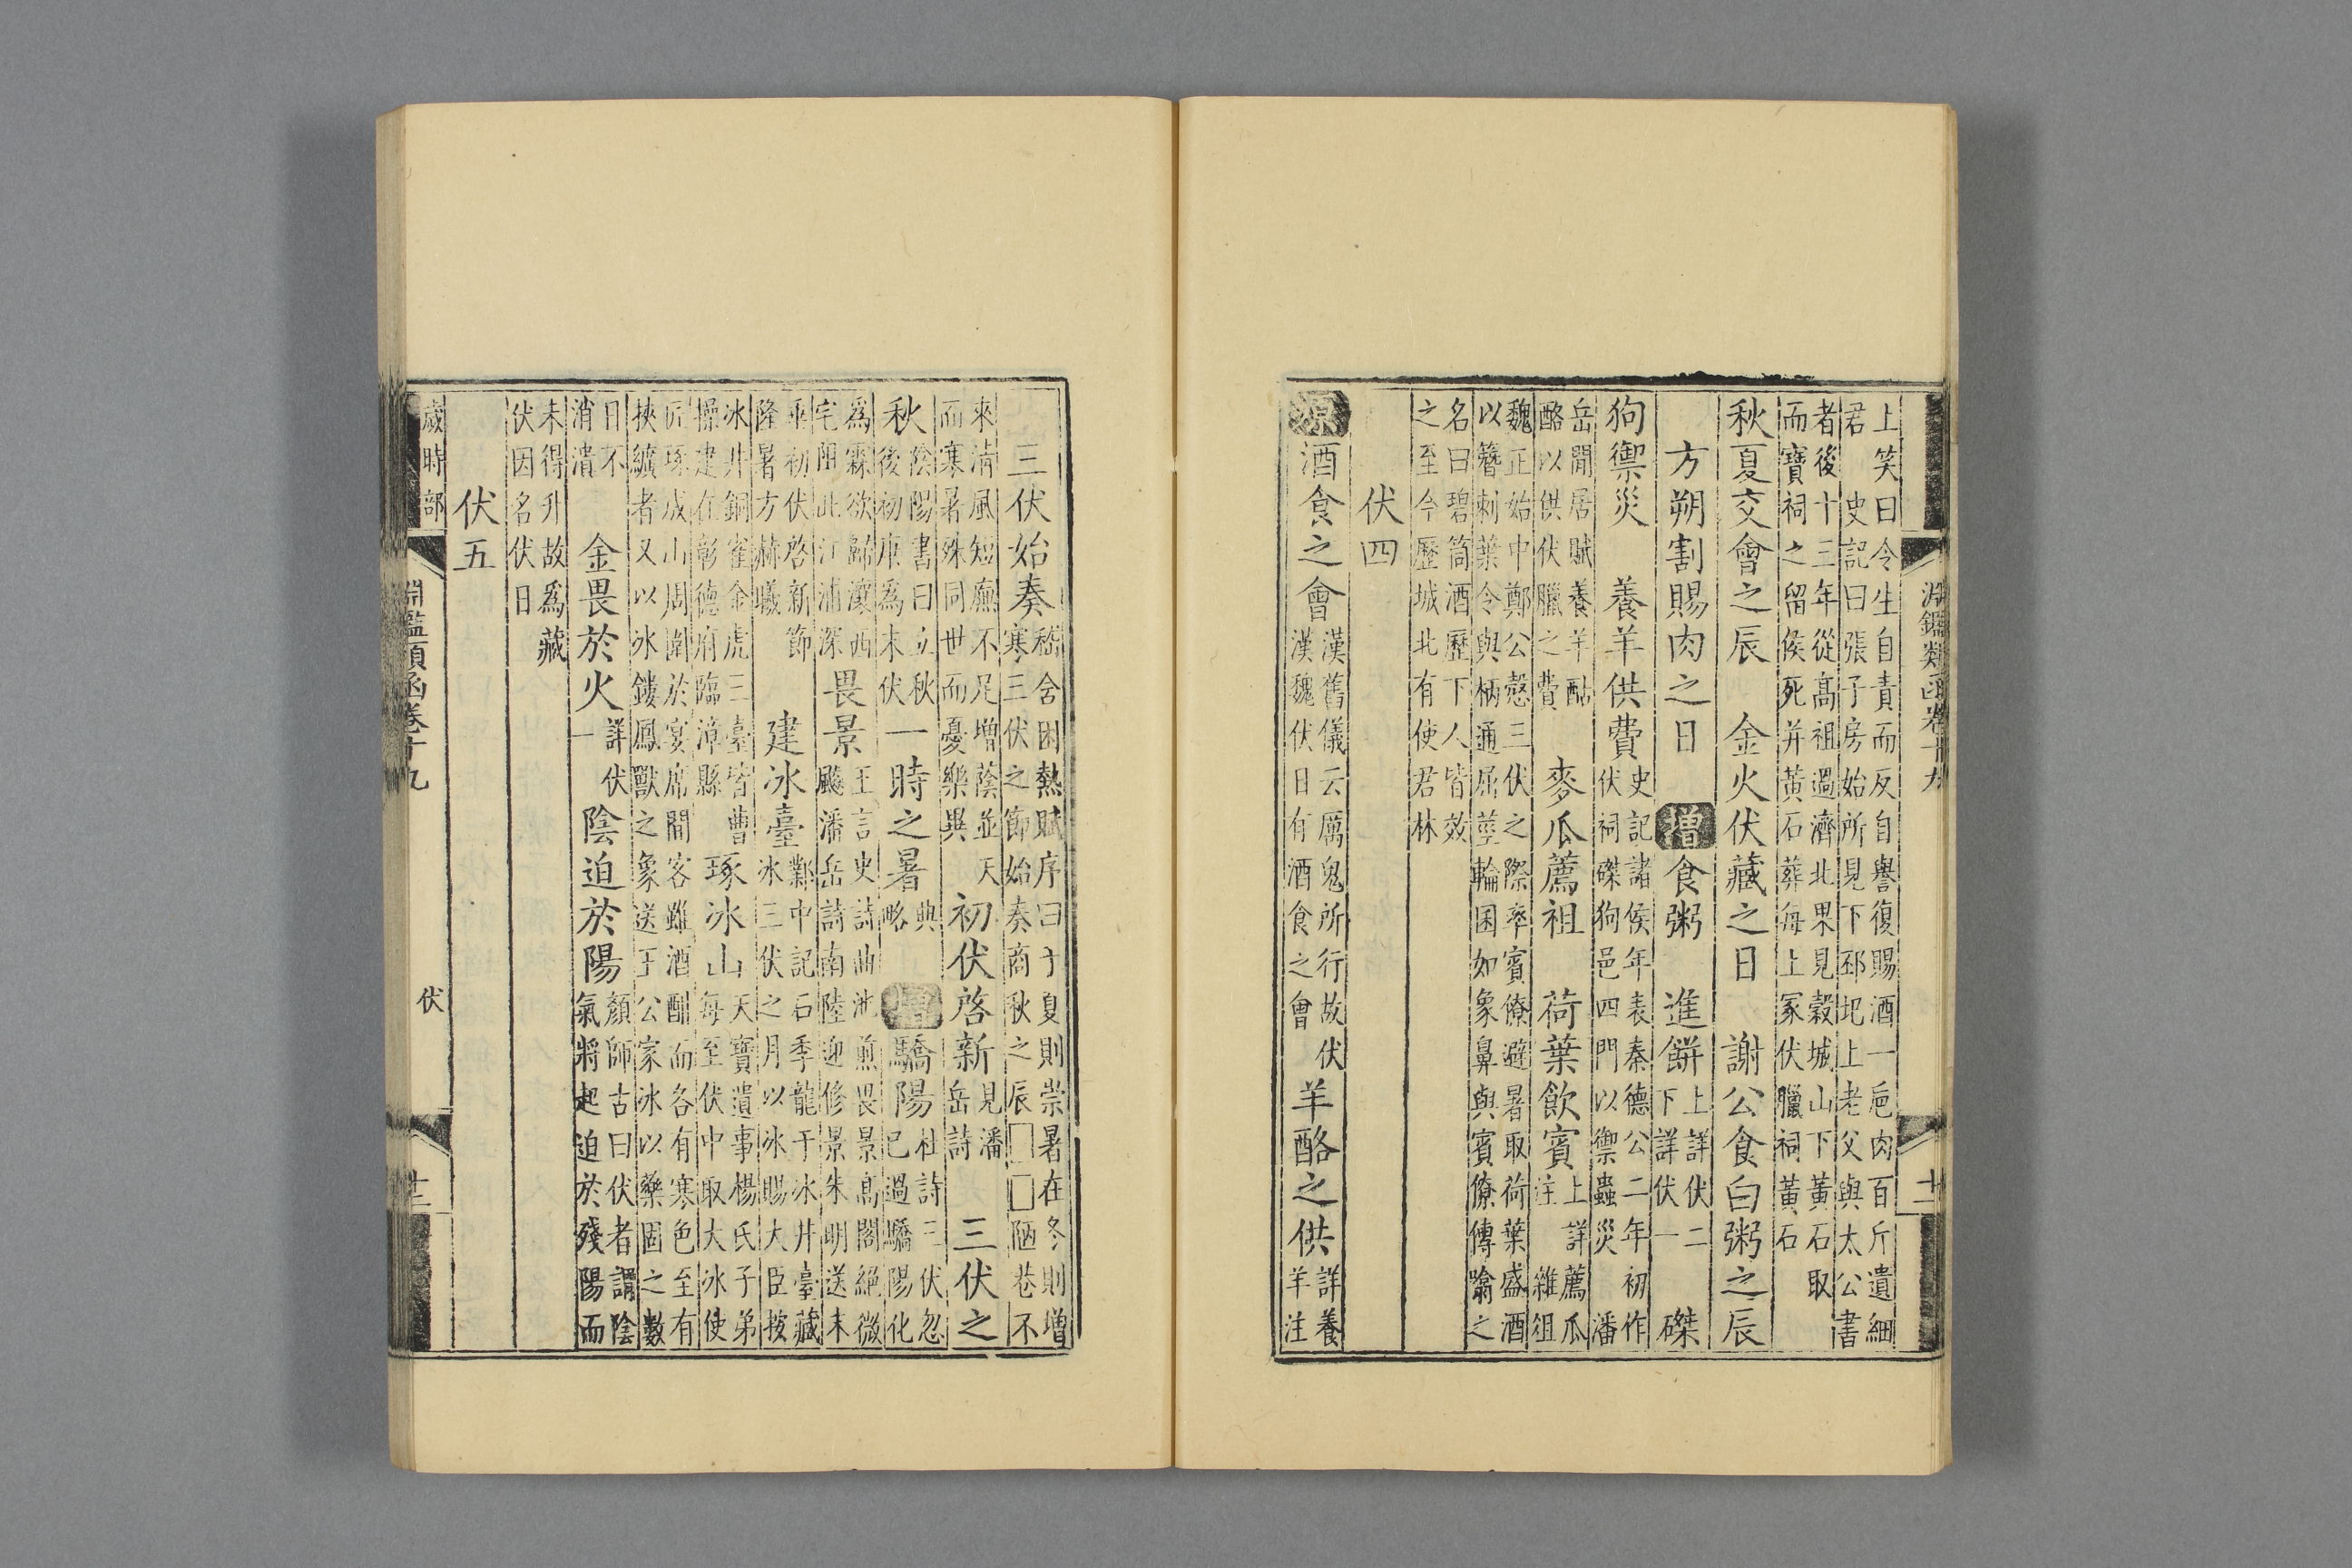 淵鑑類函卷十九
上笑曰令生自責而反自譽復賜酒一卮肉百斤遺細
君　史記曰張子房始所見下邳圯上老父與太公書
者後十三年從高祖過濟北果見穀城山下黃石取
而寶祠之留侯死并黃石葬每上冢伏臘祠黃石
秋夏交會之辰　金火伏藏之日　謝公食白粥之辰
方朔割賜肉之日　增食粥　進餅上詳伏二下詳伏一　磔
狗禦災　養羊供費史記諸侯年表秦德公二年初作伏祠磔狗邑四門以禦蟲災　潘
岳閒居賦養羊酤酪以供伏臘之費　麥瓜薦祖　荷葉飲賓上詳薦瓜注　雜俎
魏正始中鄭公慤三伏之際率賓僚避暑取荷葉盛酒
以簪刺葉令與柄通屈莖輪囷如象鼻與賓僚傳噏之
名曰碧筒酒歷下人皆效
之至今歷城北有使君林
伏四
源酒食之會漢舊儀云厲鬼所行故伏漢魏伏日有酒食之會　羊酪之供詳養羊注
三伏始奏嵇含困熱賦序曰于夏則崇暑在冬則增寒三伏之節始奏商秋之辰□□陋巷不
來淸風短廡不足增蔭並天而寒暑殊同世而憂樂異　初伏啓新見潘岳詩　三伏之
秋陰陽書曰立秋後初庚爲末伏　一時之暑典略　增驕陽杜詩三伏忽已過驕陽化
爲霖欲歸瀼西宅阻此江浦深　畏景王言史詩曲池煎畏景高閣絕微飈潘岳詩南陸迎修景朱明送末
垂初伏啓新節隆暑方赫曦　建冰臺鄴中記石季龍于冰井臺藏冰三伏之月以冰賜大臣按
冰井銅雀金虎三臺皆曹操建在彰德府臨漳縣　琢冰山天寶遺事楊氏子弟每至伏中取大冰使
匠琢成山周圍於宴席間客雖酒酣而各有寒色至有
挾纊者又以冰鏤鳳獸之象送王公家冰以藥固之數
日不消潰　金畏於火詳伏一　陰迫於陽顏師古曰伏者謂陰氣將起迫於殘陽而
未得升故爲藏
伏因名伏日
伏五
歲時部　淵鑑類函卷十九　伏